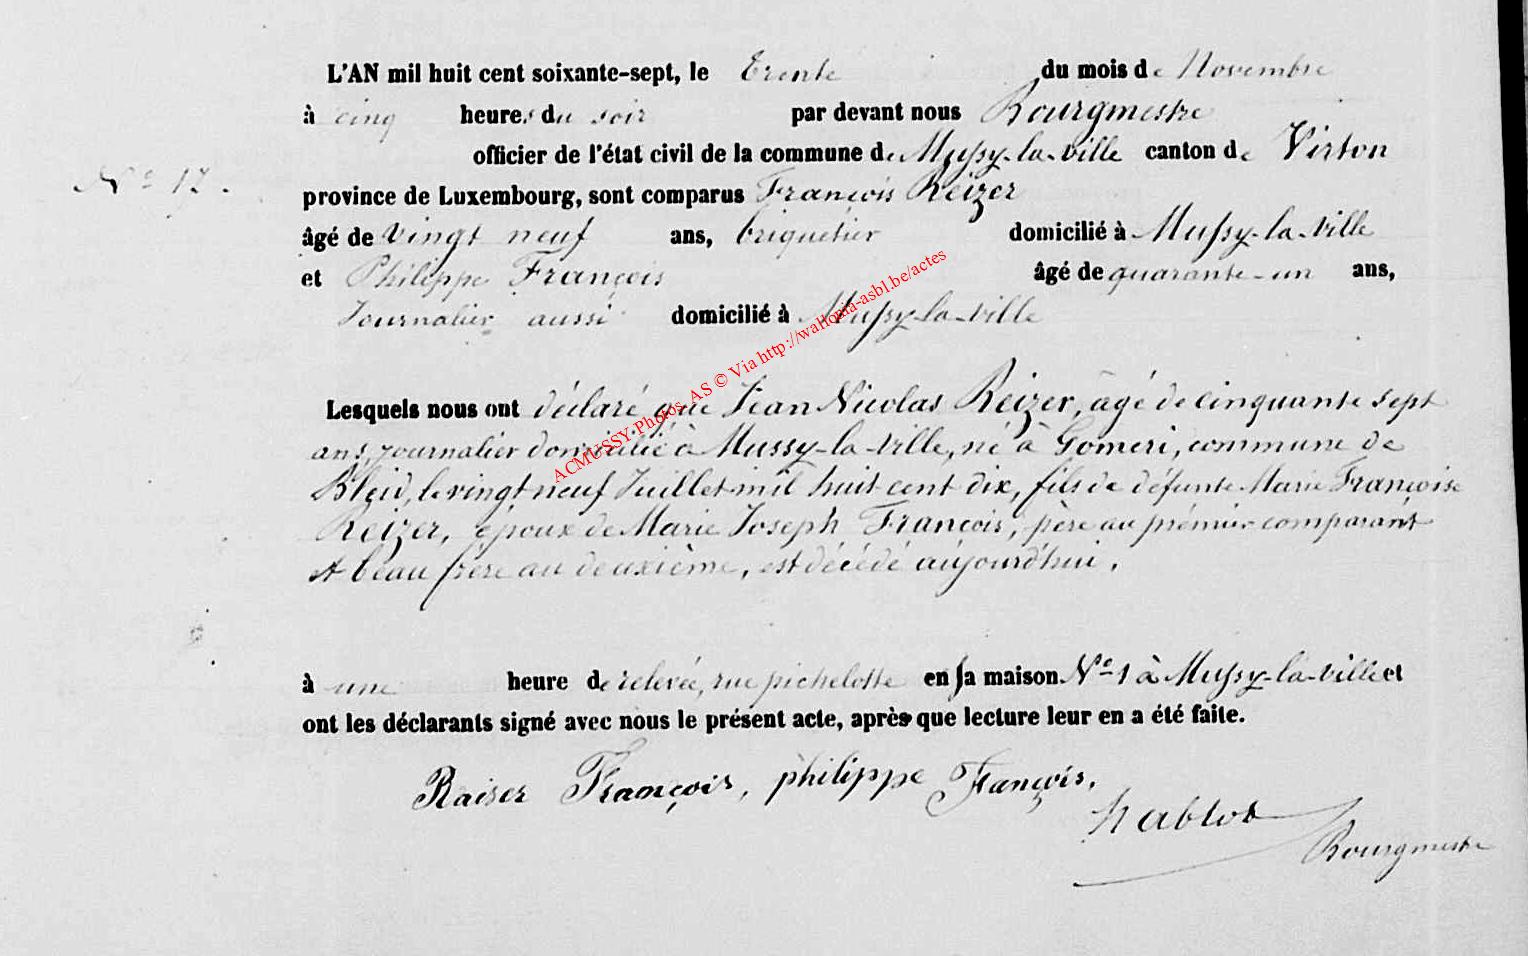 L'AN mil huit cent soixante-sept, le Trente du mois de Novembre
à cinq heures du soir par devant nous Bourgmestre
officier de l'état civil de la commune de Mussy-la-ville canton de Virton
N° 17.
province de Luxembourg, sont comparus François Reizer
âgé de vingt neuf ans, briquetier domicilié à Mussy-la-ville
et Philippe François âgé de quarante-un ans,
Journalier aussi domicilié à Mussy-la-ville
ACMUSSY-Photos, AS © Via http://wallonia-asbl.be/actes
Lesquels nous ont déclaré que Jean Nicolas Reizer, âgé de cinquante sept
ans, journalier domicilié à Mussy-la-ville, né à Gomeri, commune de
Bleid, le vingt neuf Juillet mil huit cent dix, fils de défunte Marie Françoise
Reizer, époux de Marie Joseph François, père au prémier comparant
et beau frère au deuxième, est décédé aujourd'hui.
à une heure de relevée, rue pichelotte en sa maison N° 1 à Mussy-la-ville et
ont les déclarants signé avec nous le présent acte, après que lecture leur en a été faite.
Raiser François, philippe François,
hablot
Bourgmestre